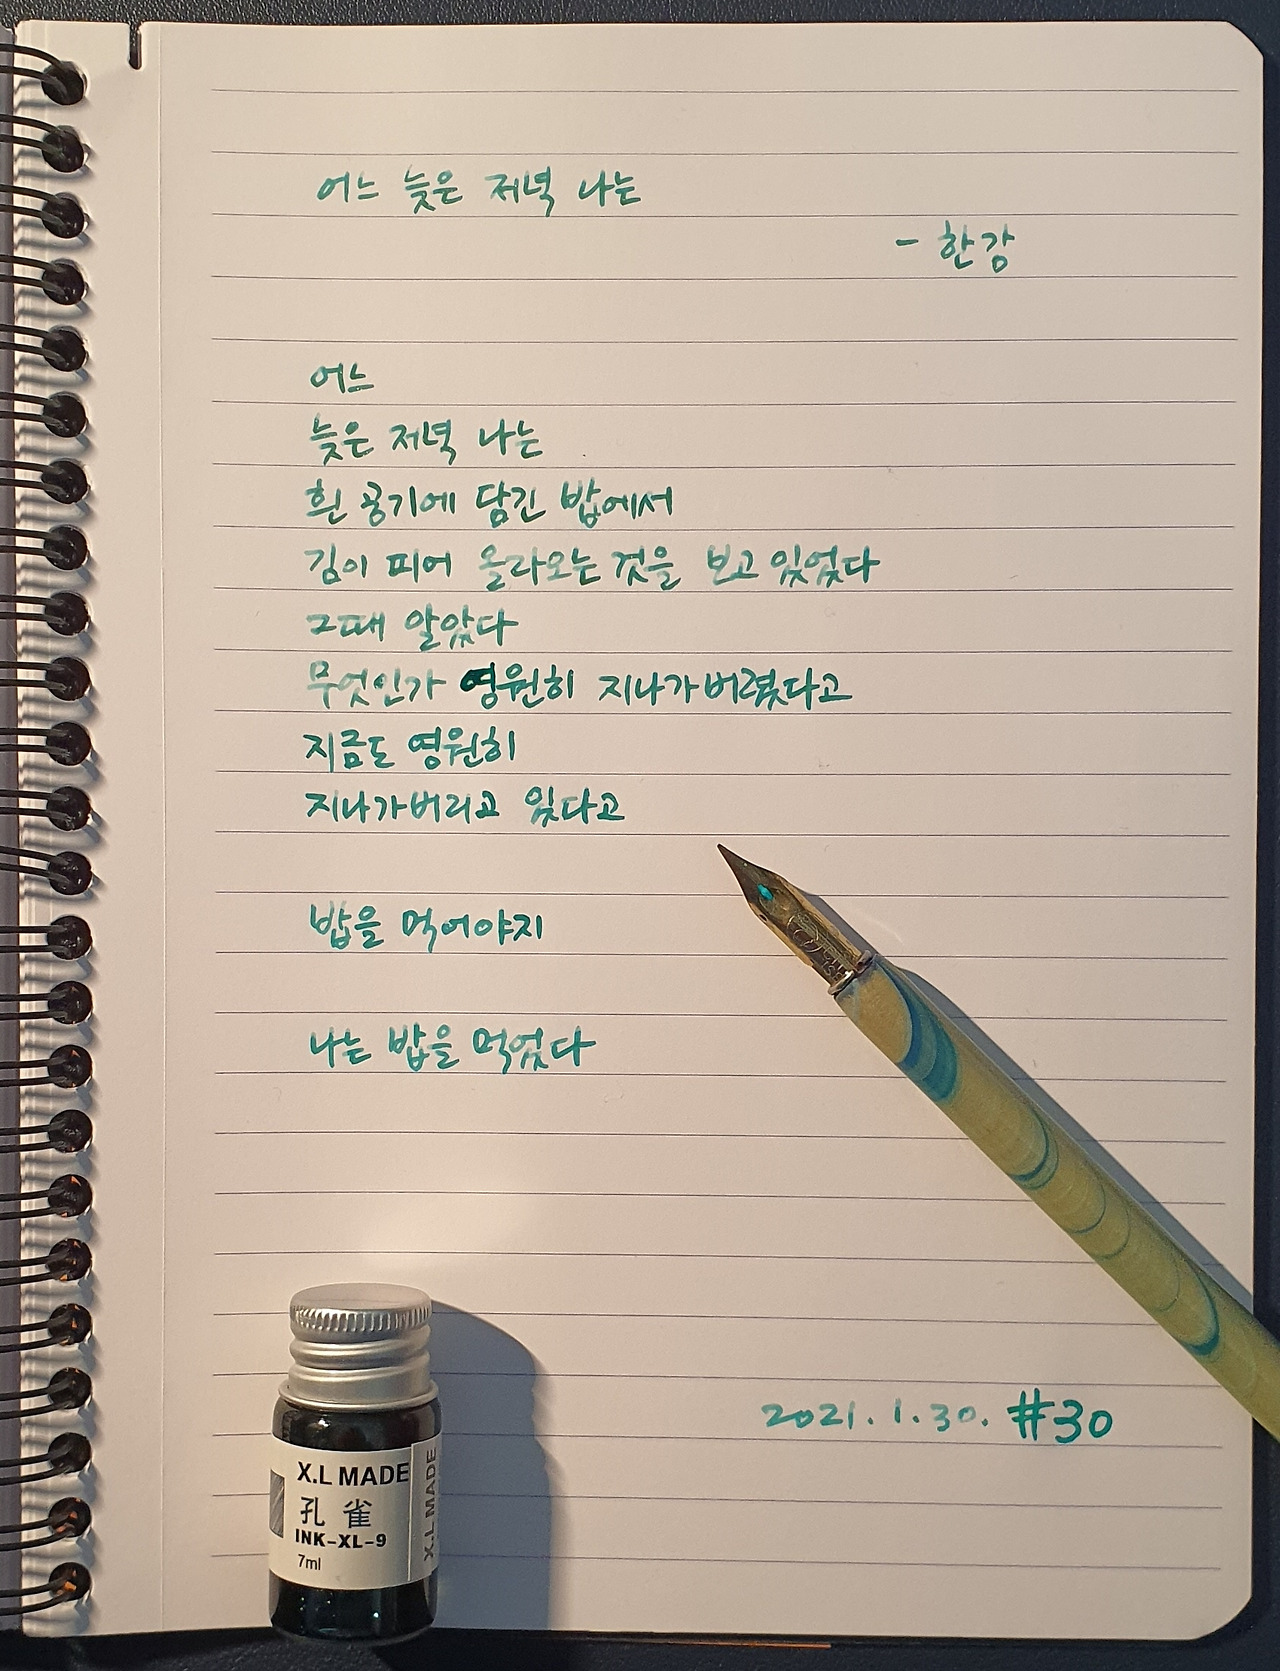 어느 늦은 저녁 나는
- 한강
어느
늦은 저녁 나는
흰 공기에 담긴 밥에서
김이 피어 올라오는 것을 보고 있었다
그때 알았다
무엇인가 영원히 지나가버렸다고
지금도 영원히
지나가버리고 있다고
밥을 먹어야지
나는 밥을 먹었다
2021.1.30. #30
X.L MADE
孔雀
INK-XL-9
7ml
X.L MADE